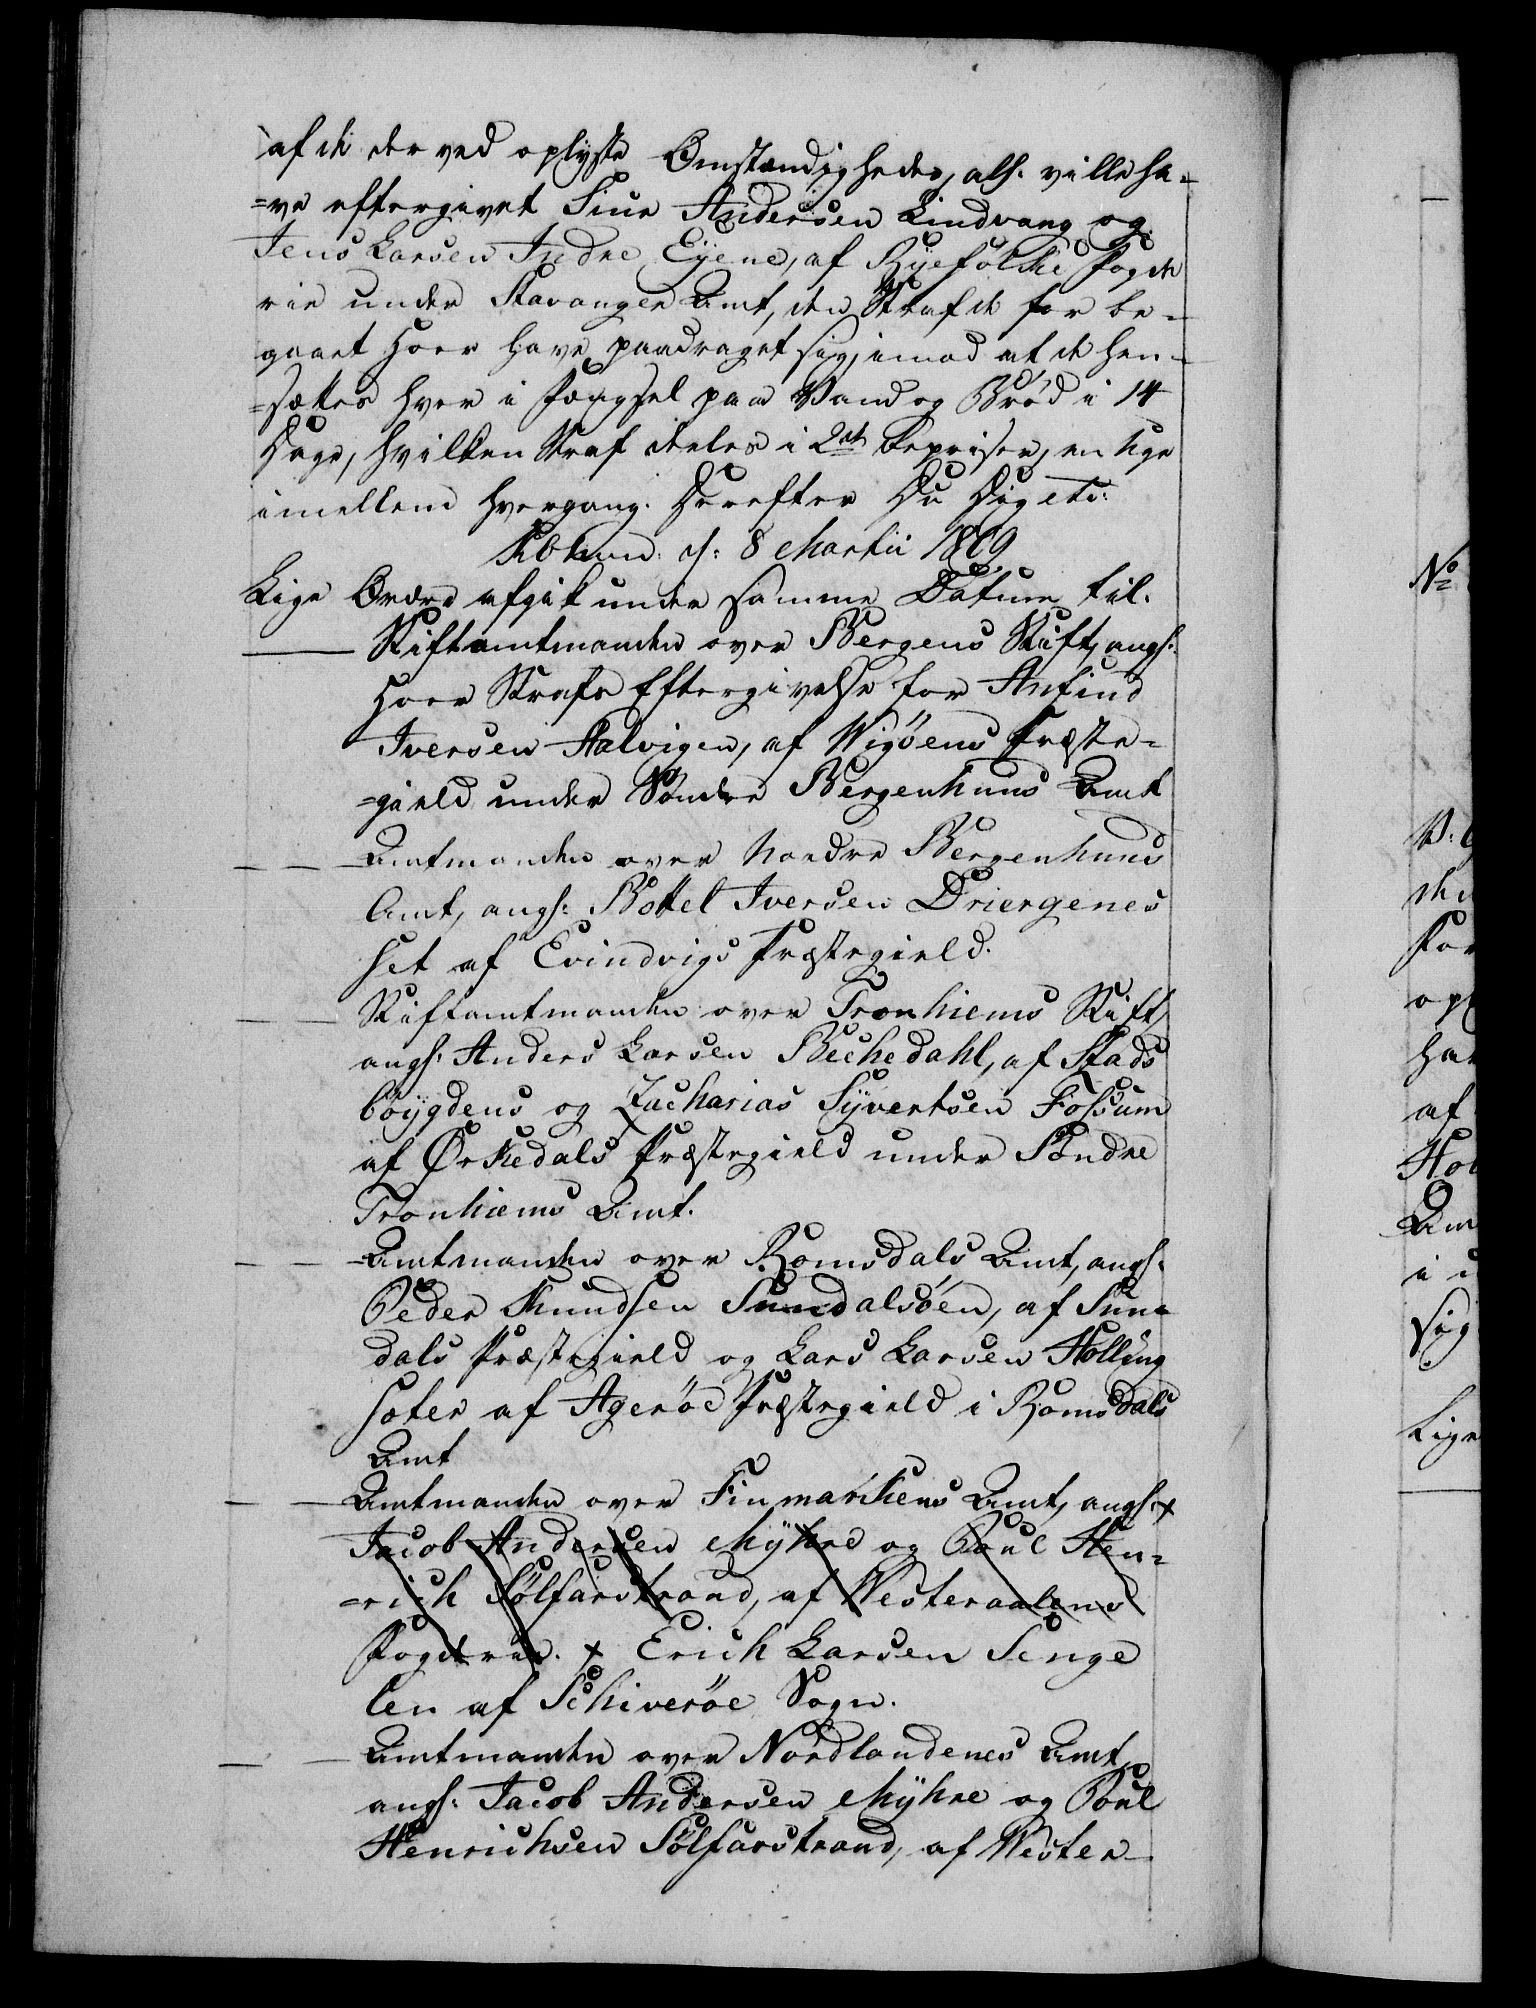 af de derved oplyste Omstændigheder, alh. ville ha-
=ve eftergivet Siur Andersen Lindvang og
Jens Larsen Indre Eÿene, af Rÿefølke Fogde
rie under Stavanger Amt, den Straf de for be-
gaaet Hoer have paadraget sig, imod at de hen-
=sættes hver i Fængsel paa Vand og Brød i 14
Dage, hvilken Straf deeles i 2de Repriser, en Uge
imellem hvergang. Derefter Du Dig etc:
Kbhavn. d: 8 Martii 1809
Lige Ordre afgik under samme Datum til.
Stiftamtmanden over Bergens Stift, angl.
Hoer Strafs Eftergivelse for Anfind
Iversen Aalvigen, af Wigöens Præste-
=gield under Søndre Bergenhuus Amt
Amtmanden over Nordre Bergenhuus
Amt, angl: Bottel Iversen Driergenes
set af Evindvigs Præstegield.
Stiftamtmanden over Tronhiems Stift,
angl. Anders Larsen Bechedahl, af Stads
böÿgdens og Zacharias Sÿvertsen Fossum
af Ørkedals Præstegield under Søndre
Tronhiems Amt.
Amtmanden over Romsdals Amt, angl.
Peder Knudsen Sundalsöen, af Sun-
dals Præstegield og Lars Larsen Holling
sæter af Agerøe Præstegield i Romsdals
Amt
Amtmanden over Finmarkens Amt, angl. x
Jacob Andersen Mÿhre og Poul Hen-
=rich Sölfarstrand, af Westeraalens
Fogderie. x Erich Larsen Senge
len af Schiveröe Sogn.
Amtmanden over Nordlandenes Amt
angl. Jacob Andersen Mÿhre og Poul
Henrichsen Sölfarstrand, af Wester-